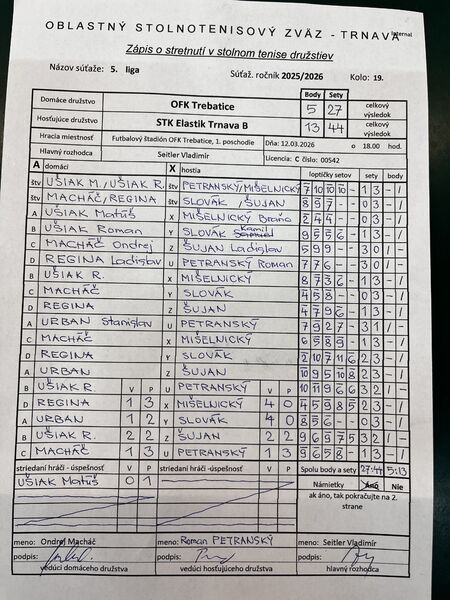 OBLASTNÝ STOLNOTENISOVÝ ZVÄZ - TRNAVA
Internal
Zápis o stretnutí v stolnom tenise družstiev
Názov súťaže: 5. liga Súťaž. ročník 2025/2026 Kolo: 19.
Body Sety
Domáce družstvo OFK Trebatice 5 27 celkový výsledok
Hosťujúce družstvo STK Elastik Trnava B 13 44 celkový výsledok
Hracia miestnosť Futbalový štadión OFK Trebatice, 1. poschodie Dňa: 12.03.2026 o 18.00 hod.
Hlavný rozhodca Seitler Vladimír Licencia: C číslo: 00542
A domáci X hostia loptičky setov sety body
štv UŠIAK M./UŠIAK R. štv PETRANSKÝ/MIŠELNICKÝ 7 10 10 10 - 1 3 - /
štv MACHÁČ/REGINA štv SLOVÁK/ŠUJAN 8 9 7 - - 0 3 - /
A UŠIAK Matúš X MIŠELNICKÝ Braňo 2 4 4 - - 0 3 - /
B UŠIAK Roman Y SLOVÁK Kamil 9 5 5 6 - 1 3 - /
C MACHÁČ Ondrej Z ŠUJAN Ladislav 5 9 9 - - 3 0 / -
D REGINA Ladislav U PETRANSKÝ Roman 7 7 6 - - 3 0 / -
B UŠIAK R. X MIŠELNICKÝ 8 7 3 6 - 1 3 - /
C MACHÁČ Y SLOVÁK 4 5 8 - - 0 3 - /
D REGINA Z ŠUJAN 4 7 9 6 - 1 3 - /
A URBAN Stanislav U PETRANSKÝ 7 9 2 7 - 3 1 / -
C MACHÁČ X MIŠELNICKÝ 6 5 8 9 - 1 3 - /
D REGINA Y SLOVÁK 2 10 7 11 6 2 3 - /
A URBAN Z ŠUJAN 10 9 5 10 8 2 3 - /
B UŠIAK R. V P U PETRANSKÝ V P 10 11 9 6 6 3 2 / -
D REGINA 1 3 X MIŠELNICKÝ 4 0 4 5 9 8 5 2 3 - /
A URBAN 1 2 Y SLOVÁK 4 0 8 5 6 - - 0 3 - /
B UŠIAK R. 2 2 Z ŠUJAN 2 2 9 6 9 7 5 3 2 / -
C MACHÁČ 1 3 U PETRANSKÝ 1 3 9 6 5 8 - 1 3 - /
striedaní hráči - úspešnosť V P striedaní hráči - úspešnosť V P Spolu body a sety 27:44 5:13
UŠIAK Matúš 0 1 Námietky Áno Nie
ak áno, tak pokračujte na 2.
strane
meno: Ondrej Macháč meno: Roman PETRANSKÝ meno: Seitler Vladimír
podpis: podpis: podpis:
vedúci domáceho družstva vedúci hosťujúceho družstva hlavný rozhodca